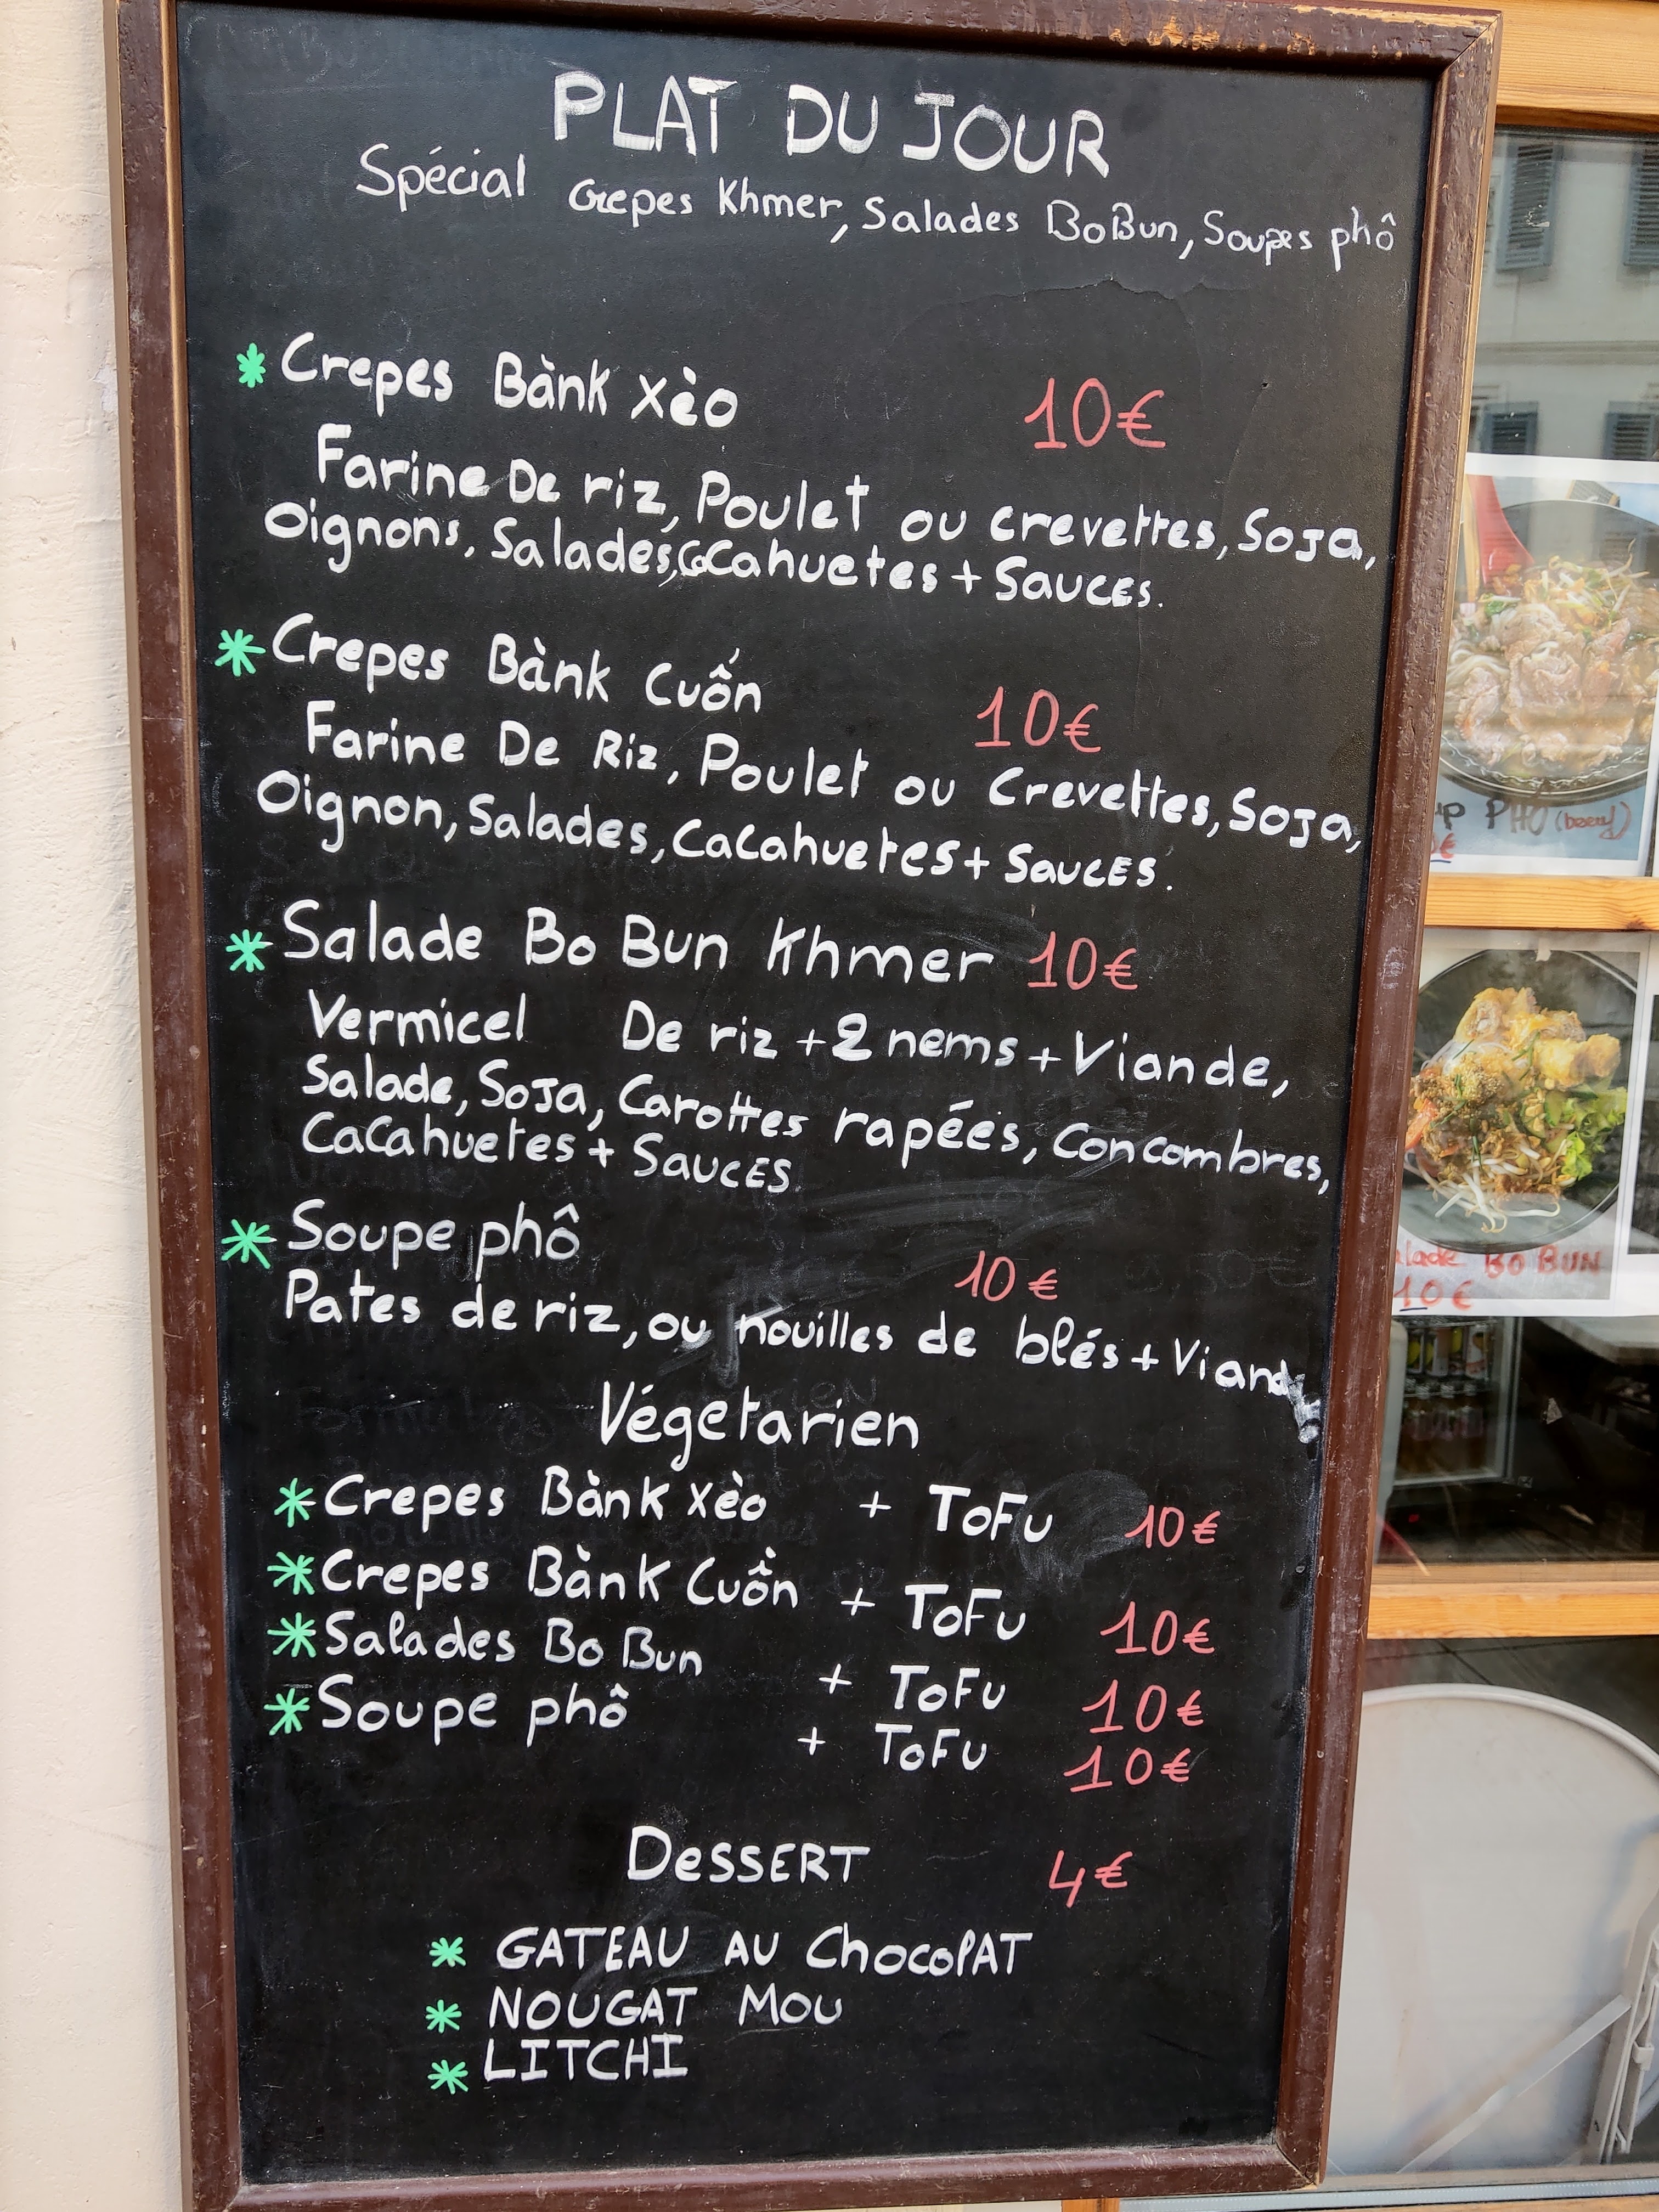 PLAT DU JOUR
Spécial Crepes Khmer, Salades BoBun, Soupes phô
* Crepes Bànk xèo 10€
Farine De riz, Poulet ou crevettes, Soja,
Oignons, Salades, Cacahuetes + Sauces.
* Crepes Bànk Cuốn 10€
Farine De Riz, Poulet ou Crevettes, Soja,
Oignon, Salades, Cacahuetes + Sauces.
* Salade Bo Bun Khmer 10€
Vermicel De riz + 2 nems + Viande,
Salade, Soja, Carottes rapées, Concombres,
Cacahuetes + Sauces.
* Soupe phô 10€
Pates de riz, ou nouilles de blés +
Végetarien
* Crepes Bànk xèo + ToFu 10€
* Crepes Bànk Cuồn + ToFu 10€
* Salades Bo Bun + ToFu 10€
* Soupe phô + ToFu 10€
DeSSERT 4€
* GATEAU AU ChocolAT
* NOUGAT MOU
* LITCHI
PHO (bœuf)
BO BUN
10€